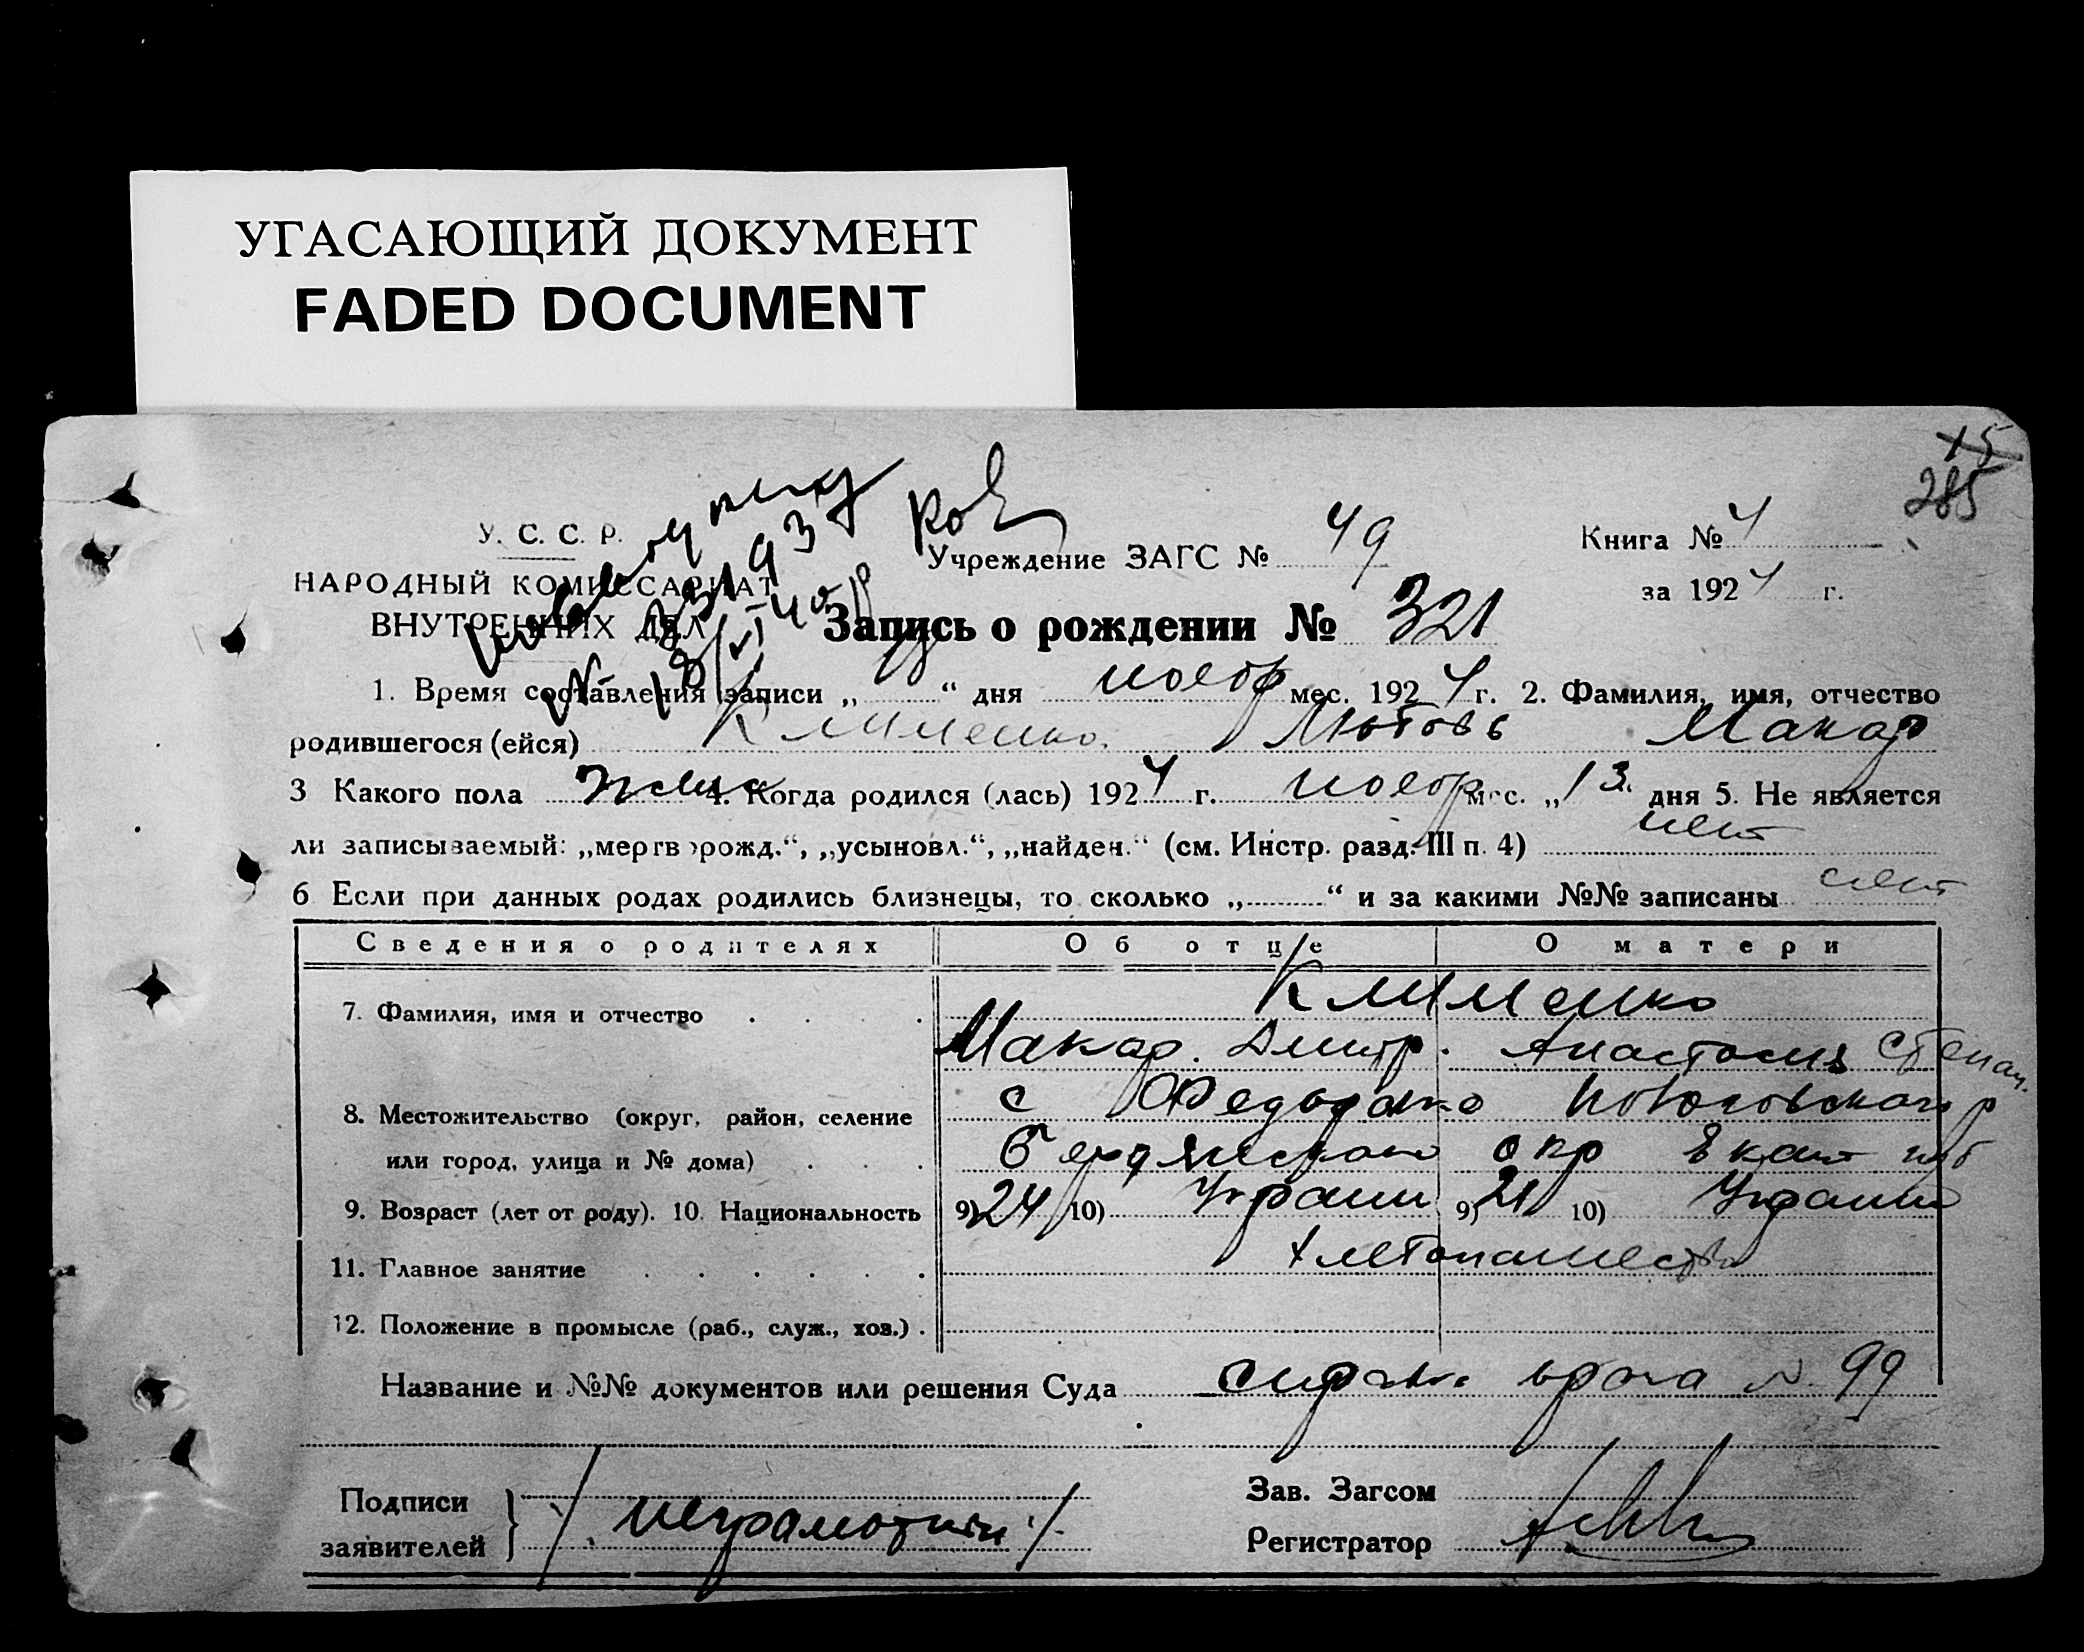 УГАСАЮЩИЙ ДОКУМЕНТ
FADED DOCUMENT
15
285
У. С. С. Р.
НАРОДНЫЙ КОМИССАРИАТ
ВНУТРЕННИХ ДЕЛ
Учреждение ЗАГС № 49
Книга № 4
за 1924 г.
Запись о рождении № 321
1. Время составления записи „ “ дня нояб мес. 1924 г. 2. Фамилия, имя, отчество
родившегося (ейся) Клименко Любовь Макар
3 Какого пола женск 4. Когда родился (лась) 1924 г. нояб мес. „13“ дня 5. Не является
ли записываемый: „мертворожд.“, „усыновл.“, „найден.“ (см. Инстр. разд. III п. 4) нет
6 Если при данных родах родились близнецы, то сколько „ “ и за какими №№ записаны нет
Сведения о родителях Об отце О матери
7. Фамилия, имя и отчество Клименко
Макар. Дмитр. Анастасия Степан.
8. Местожительство (округ, район, селение с Федоровка р
или город, улица и № дома) Бердянского окр Екат губ
9. Возраст (лет от роду). 10. Национальность 9) 24 10) Украин 9) 21 10) Украин
11. Главное занятие хлебопашество
12. Положение в промысле (раб., служ., хоз.)
Название и №№ документов или решения Суда справка врача № 99
Подписи
заявителей
неграмотны
Зав. Загсом
Регистратор